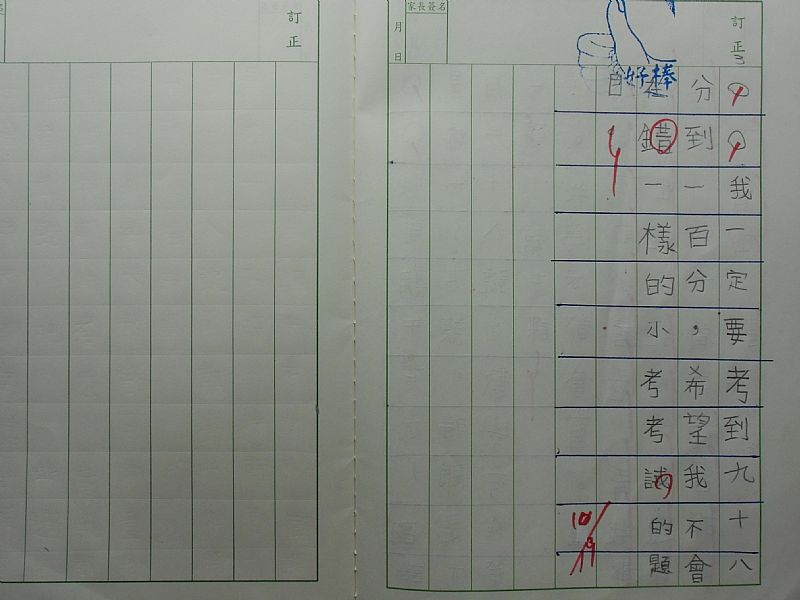 訂正
家長簽名
月 日
好棒
我一定要考到九十八
分到一百分，希望我不會
錯一樣的小考考試的題
目
10/19
訂正